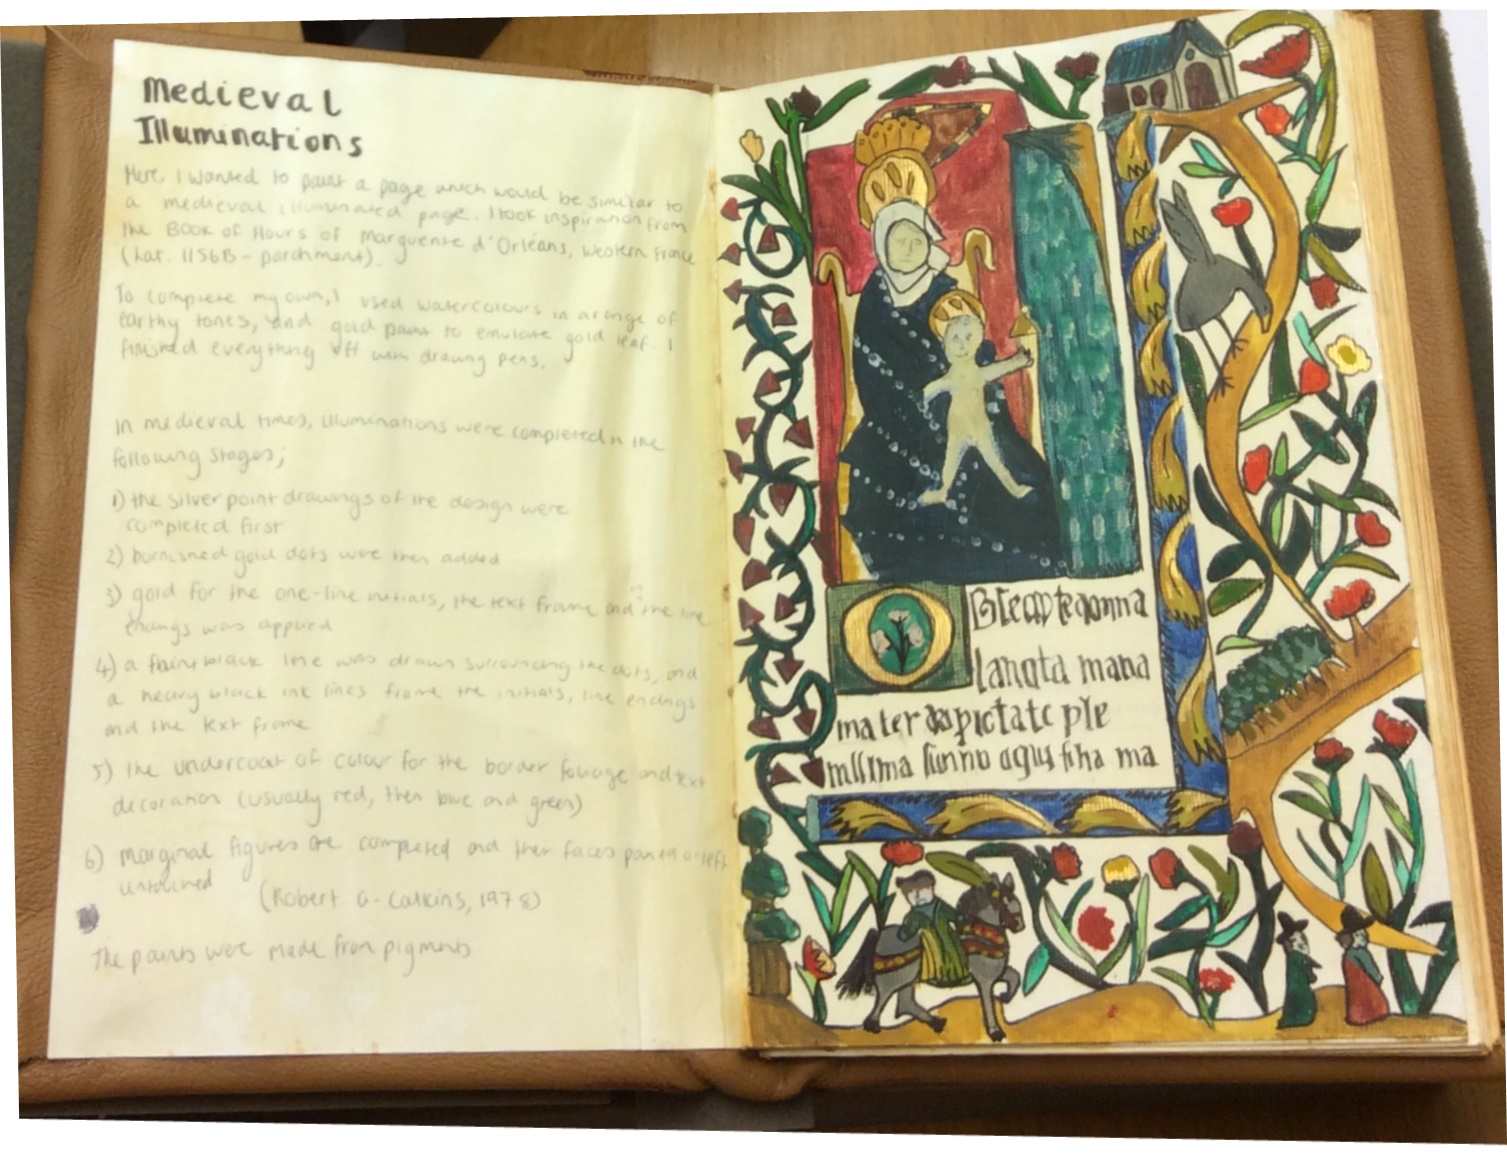 Medieval
Illuminations
Here, I wanted to paint a page which would be similar to
a medieval illuminated page. I took inspiration from
the Book of Hours of Marguerite d'Orléans, Western France
(Lat. 1156B - parchment).
To complete my own, I used watercolours in a range of
earthy tones, and gold paint to emulate gold leaf. I
finished everything off with drawing pens.
In medieval times, illuminations were completed in the
following stages;
1) the silver point drawings of the design were
completed first
2) burnished gold dots were then added
3) gold for the one-line initials, the text frame and in the line
endings was applied
4) a faint black line was drawn surrounding the dots, and
a heavy black ink lines frame the initials, line endings
and the text frame
5) the undercoat of colour for the border foliage and text
decoration (usually red, then blue and green)
6) marginal figures are completed and their faces painted or left
untouched
(Robert G. Calkins, 1978)
The paints were made from pigments
mater pietate ple
ma